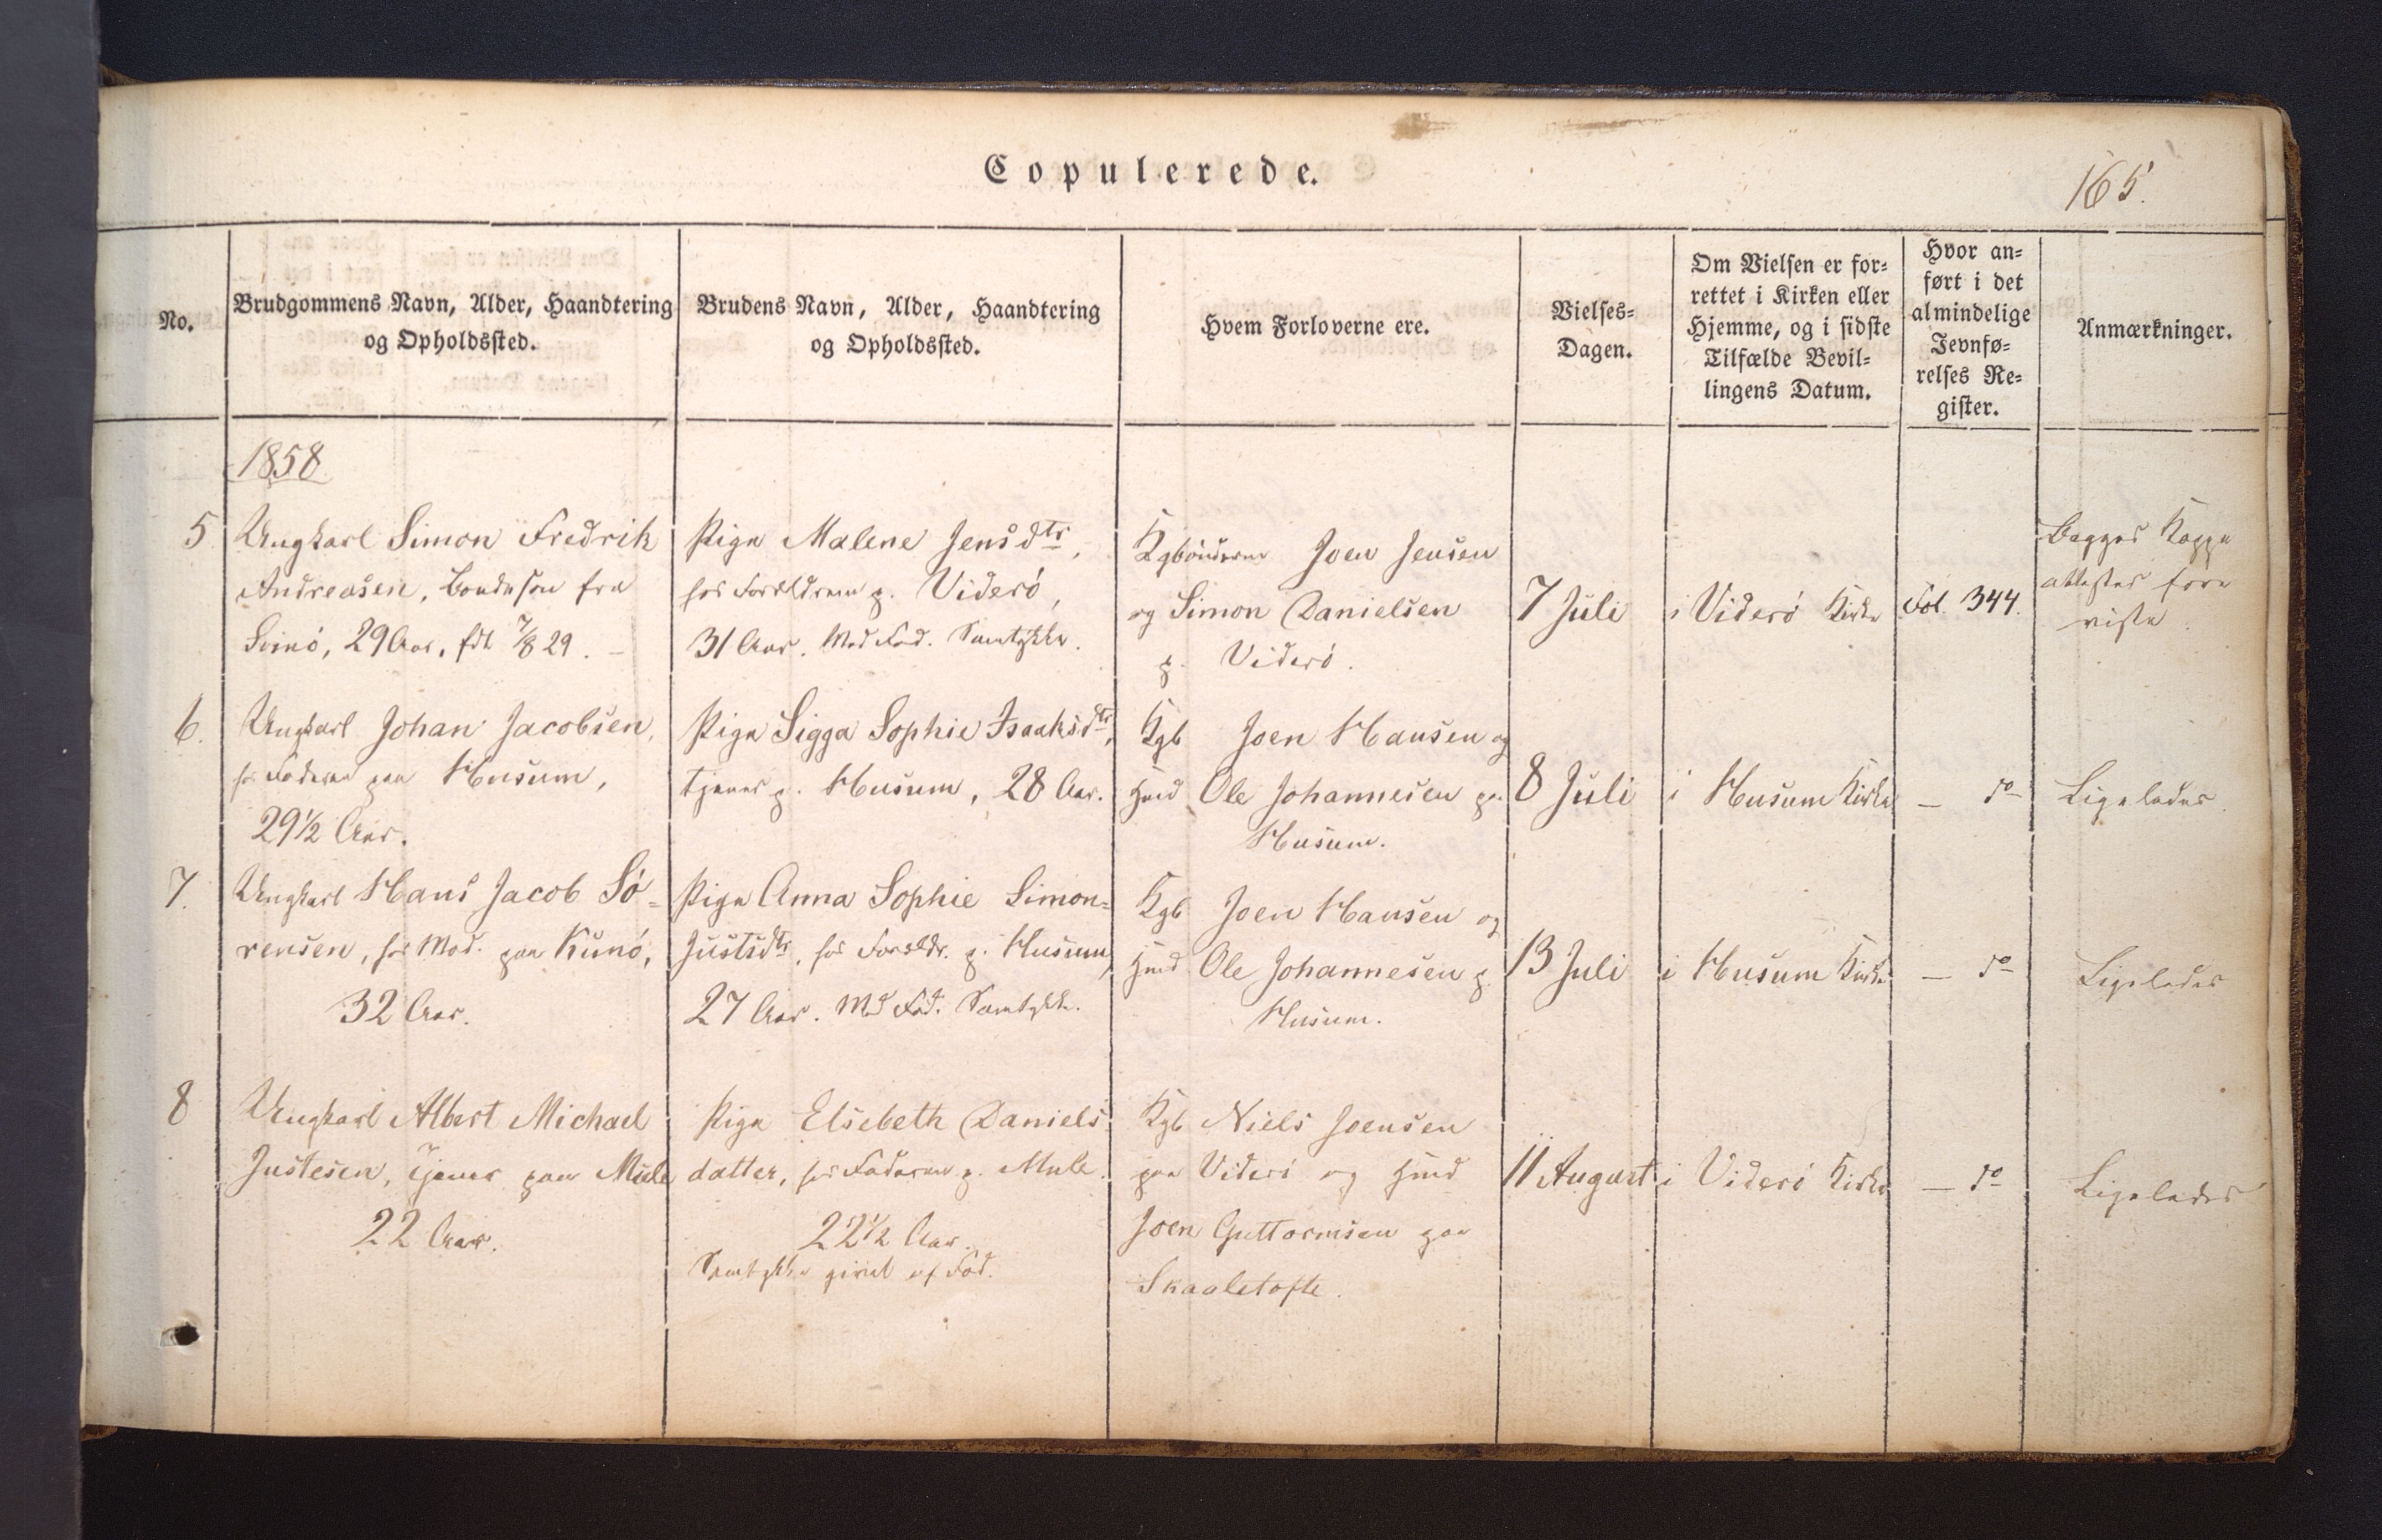 Copulerede.
165.
No.
Brudgommens Navn, Alder, Haandtering
og Opholdssted.
Brudens Navn, Alder, Haandtering
og Opholdssted.
Hvem Forloverne ere.
Vielses-
Dagen.
Om Vielsen er for-
rettet i Kirken eller
Hjemme, og i sidste
Tilfælde Bevil-
lingens Datum.
Hvor an-
ført i det
almindelige
Jevnfø-
relses Re-
gister.
Anmærkninger.
1858
5
Ungkarl Simon Fredrik
Andreasen, Bondesøn fra
Svinö, 29 Aar, fdt 7/8 29. –
Pige Malene Jensdtr,
hos Forældrene p. Viderö,
31 Aar. Med Fad. Samtykke.
Kgbönderne Joen Jensen
og Simon Danielsen
p. Viderö.
7 Juli
i Viderö Kirke
Fol. 344.
Begges Koppe
attester fore
viste.
6.
Ungkarl Johan Jacobsen,
hos Faderen paa Husum,
29½ Aar.
Pige Sigga Sophie Isaaksdtr,
tjener p. Husum, 28 Aar.
Kgb Joen Hansen og
Hmd Ole Johannesen p.
Husum.
8 Juli
i Husum Kirke
– do
Ligeledes
7.
Ungkarl Hans Jacob Sö-
rensen, hos Mod. paa Kunö,
32 Aar.
Pige Anna Sophie Simon-
Justsdtr, hos Forældr. p. Husum,
27 Aar. Md Fad. Samtykke.
Kgb Joen Hansen og
Hmd Ole Johannesen p.
Husum.
13 Juli
i Husum Kirke
– do
Ligeledes
8
Ungkarl Albert Michael
Justesen, tjener paa Mule
22 Aar.
Pige Elsebeth Daniels
datter, hos Faderen p. Mule.
22½ Aar.
Samtykke givet af Fad.
Kgb Niels Joensen
paa Viderö og Hmd
Joen Guttormsen paa
Skaaletofte.
11 August
i Viderö Kirke
– do
Ligeledes